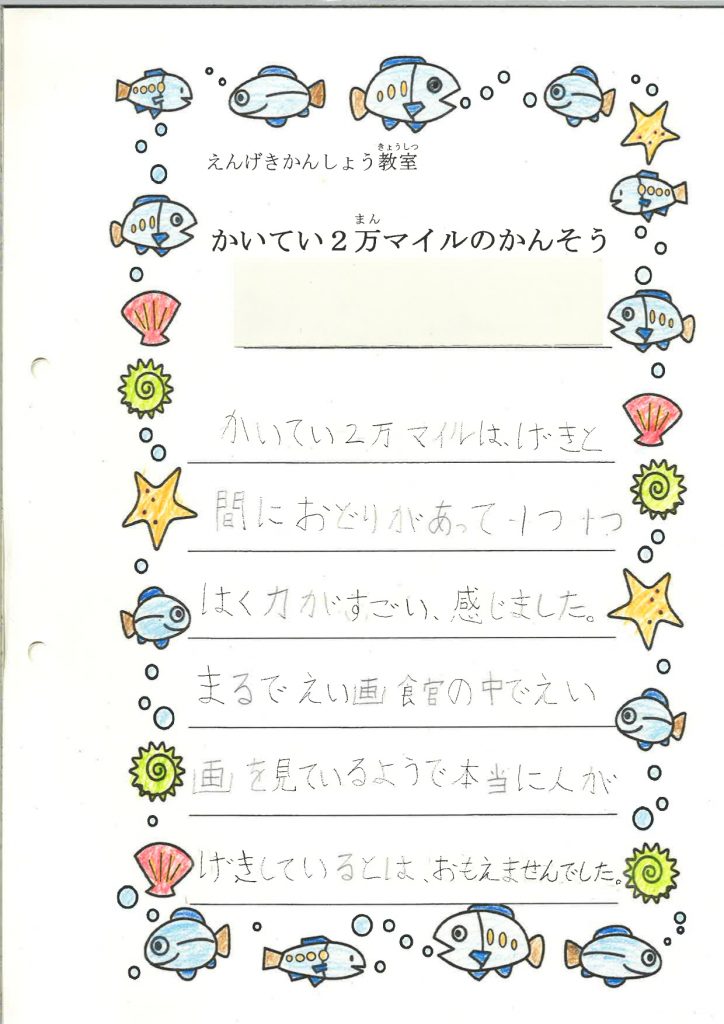 えんげきかんしょう教室
きょうしつ
かいてい2万マイルのかんそう
まん
かいてい2万マイルは、げきと
間におどりがあって1つ1つ
はく力がすごい、感じました。
まるでえい画館の中でえい
画を見ているようで本当に人が
げきしているとは、おもえませんでした。